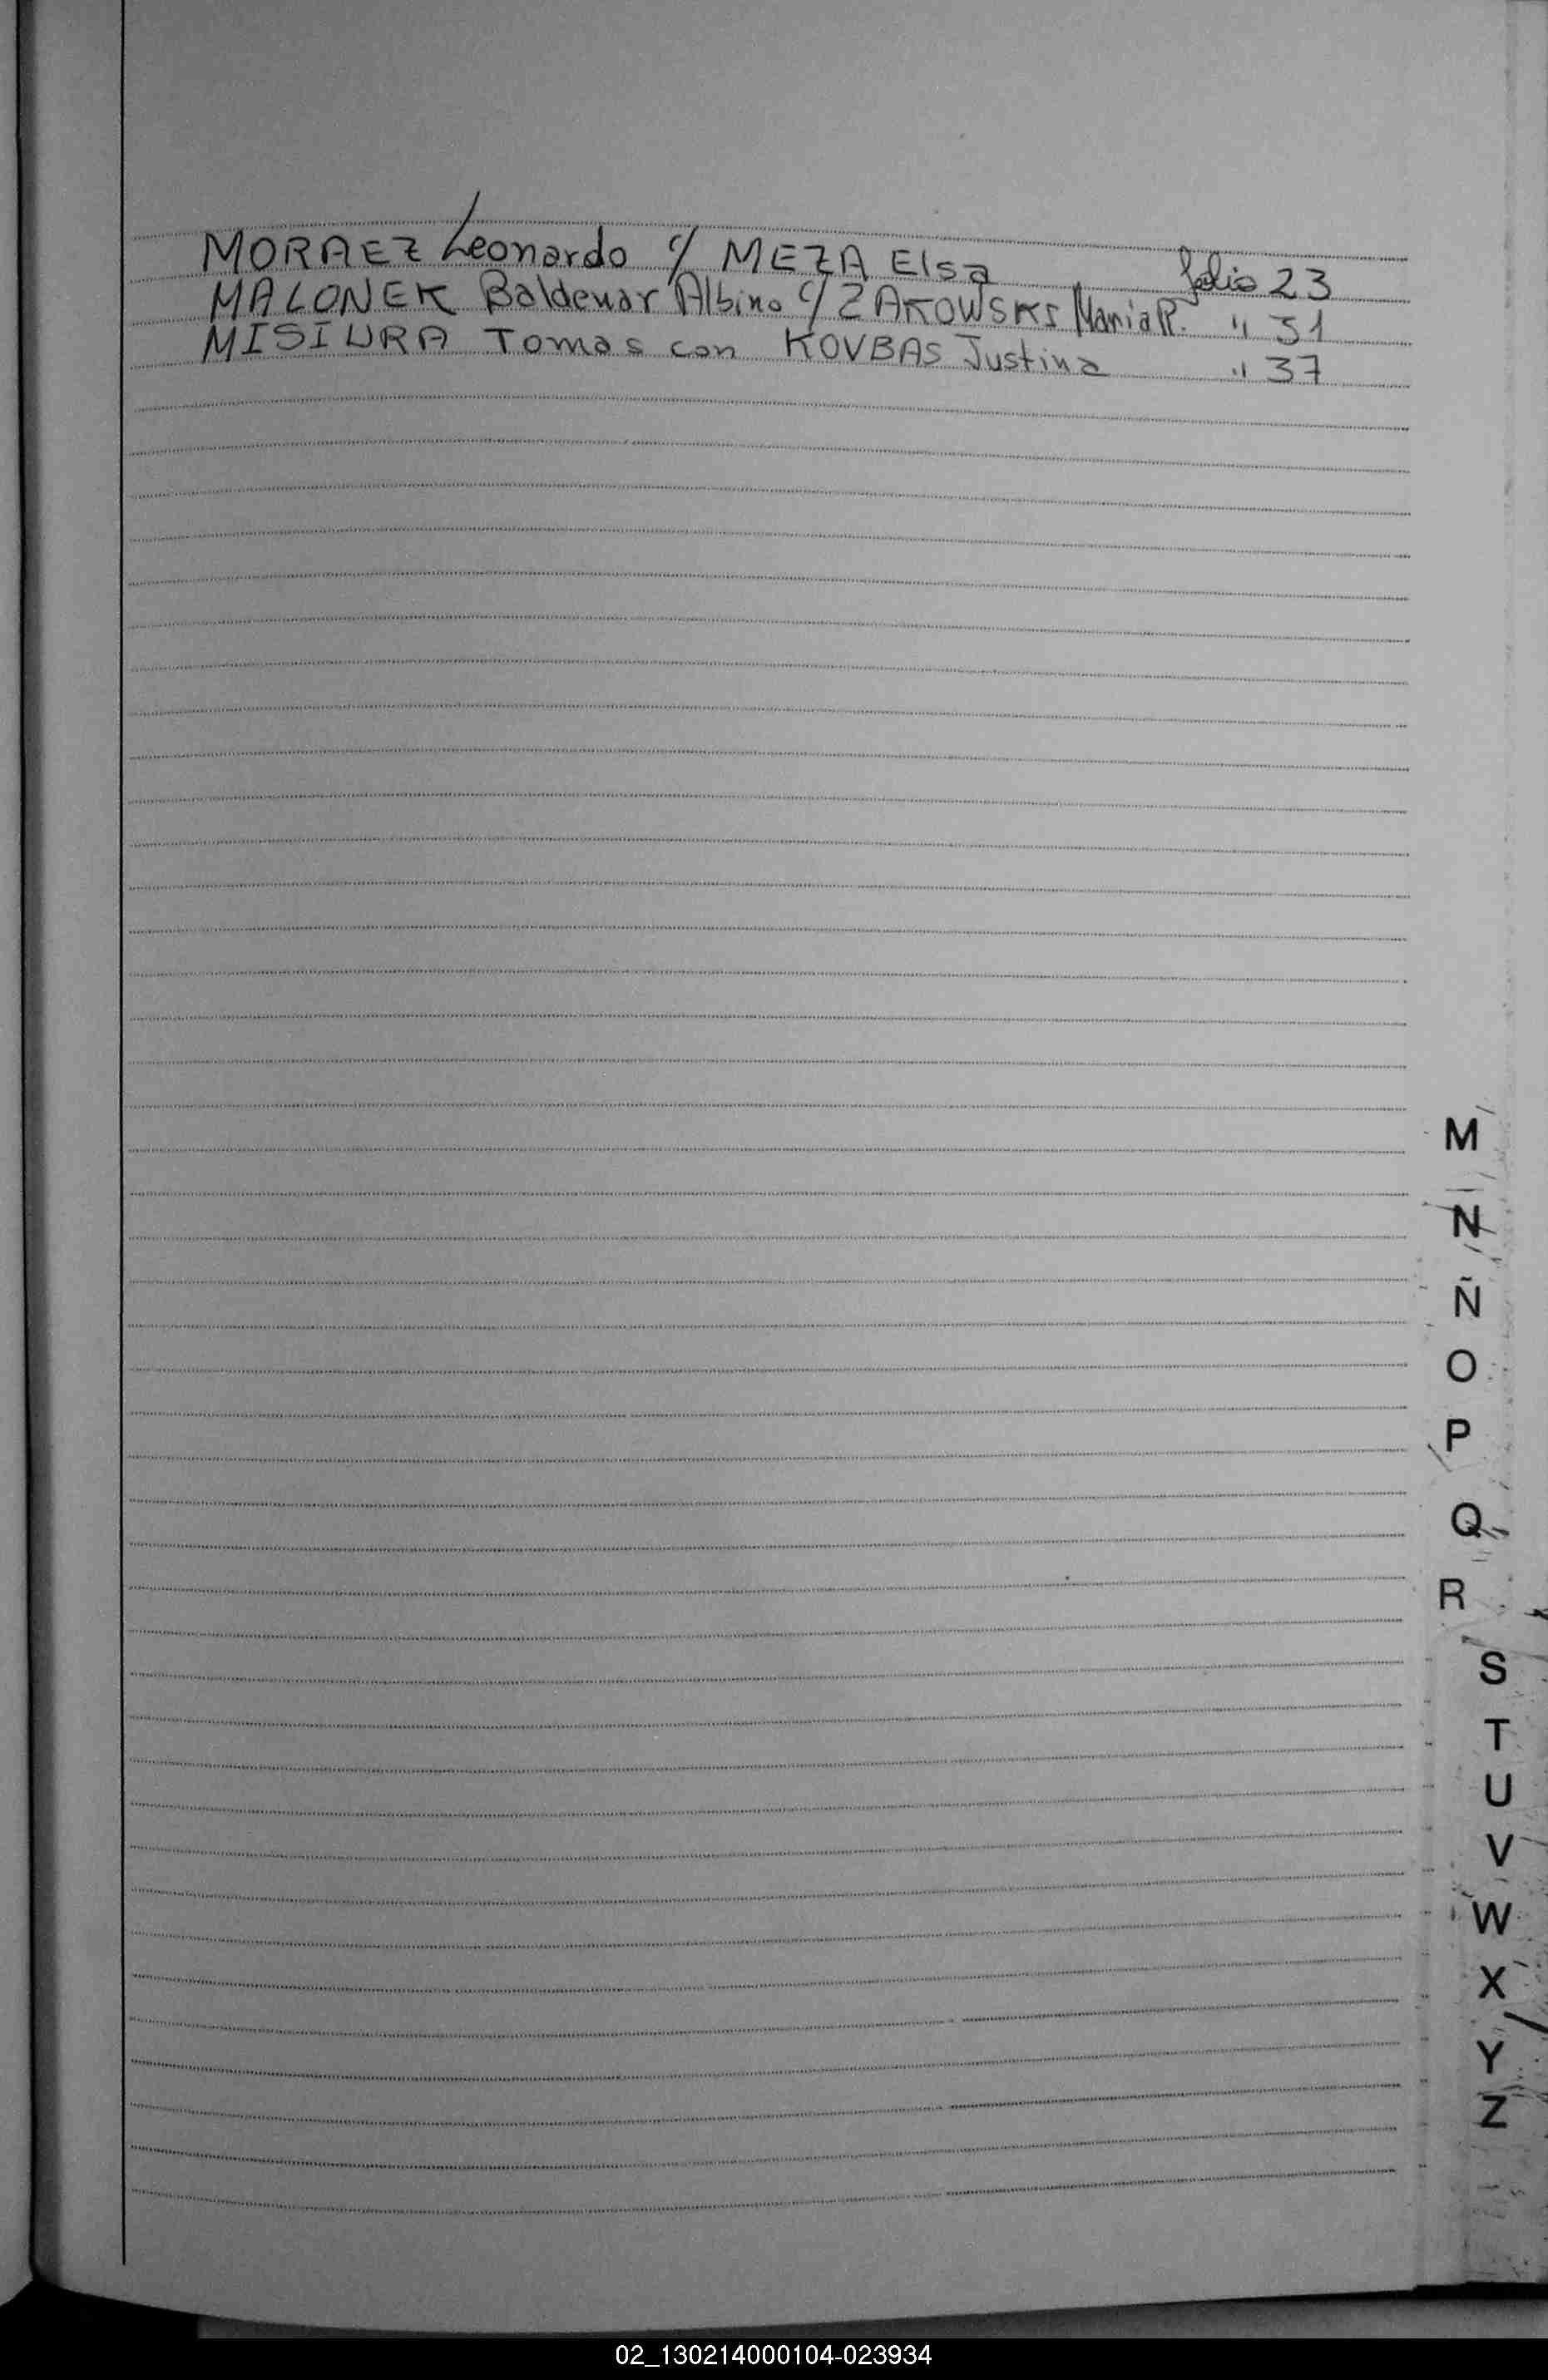 MORAEZ Leonardo c/ MEZA Elsa folio 23
MALONEK Baldemar Albino c/ ZAKOWSKI Maria R. " 31
MISIURA Tomas con KOVBAS Justina " 37
M
N
Ñ
O
P
Q
R
S
T
U
V
W
X
Y
Z
02_130214000104-023934